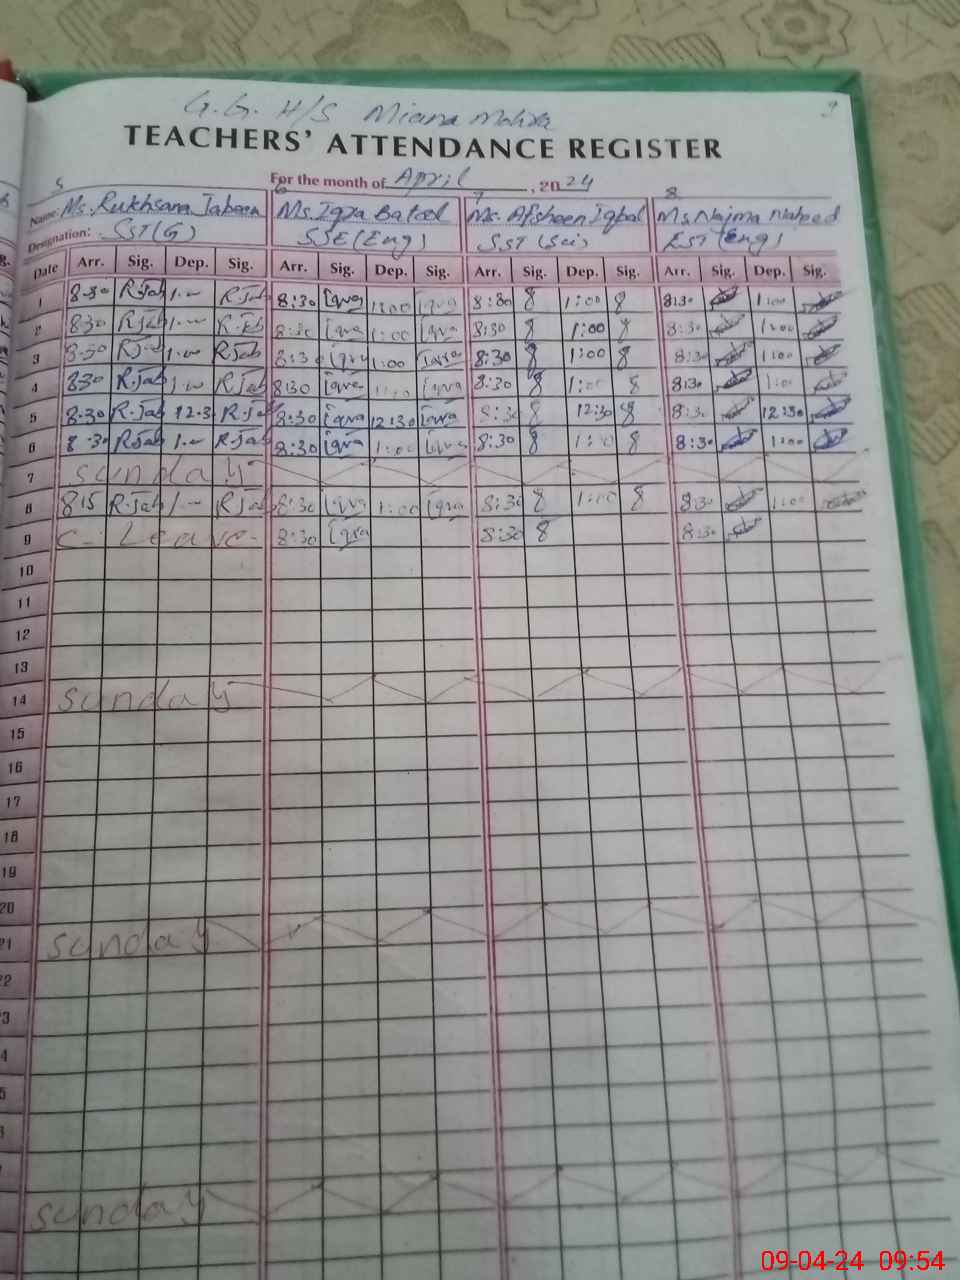 G.G. H/S Miana Mohra 9
TEACHERS' ATTENDANCE REGISTER
For the month of April, 2024
5 6 7 8
Name: Ms. Rukhsana Jabeen Ms. Iqra Batool Ms. Afsheen Iqbal Ms. Najma Naheed
Designation: SST(G) SSE(Eng) SST(Sci) EST(Eng)
Date Arr. Sig. Dep. Sig. Arr. Sig. Dep. Sig. Arr. Sig. Dep. Sig. Arr. Sig. Dep. Sig.
1 8-30 R.Jab 1.— R.Jab 8:30 Iqra 1:00 Iqra 8:30 1:00 8:30 1:00
2 830 R.Jab 1.— R.Jab 8:30 Iqra 1:00 Iqra 8:30 1:00 8:30 1:00
3 8-30 R.Jab 1.— R.Jab 8:30 Iqra 1:00 Iqra 8:30 1:00 8:30 1:00
4 830 R.Jab 1.— R.Jab 8:30 Iqra 1:00 Iqra 8:30 1:00 8:30 1:00
5 8.30 R.Jab 12.30 R.Jab 8:30 Iqra 12:30 Iqra 8:30 12:30 8:30 12:30
6 8.30 R.Jab 1.— R.Jab 8:30 Iqra 1:00 Iqra 8:30 1:00 8:30 1:00
7 sunday
8 815 R.Jab 1.— R.Jab 8:30 Iqra 1:00 Iqra 8:30 1:00 8:30 1:00
9 C- Leave- 8:30 Iqra 8:30 8:30
10
11
12
13
14 sunday
15
16
17
18
19
20
21 sunday
22
3
4
5
sunday
09-04-24 09:54